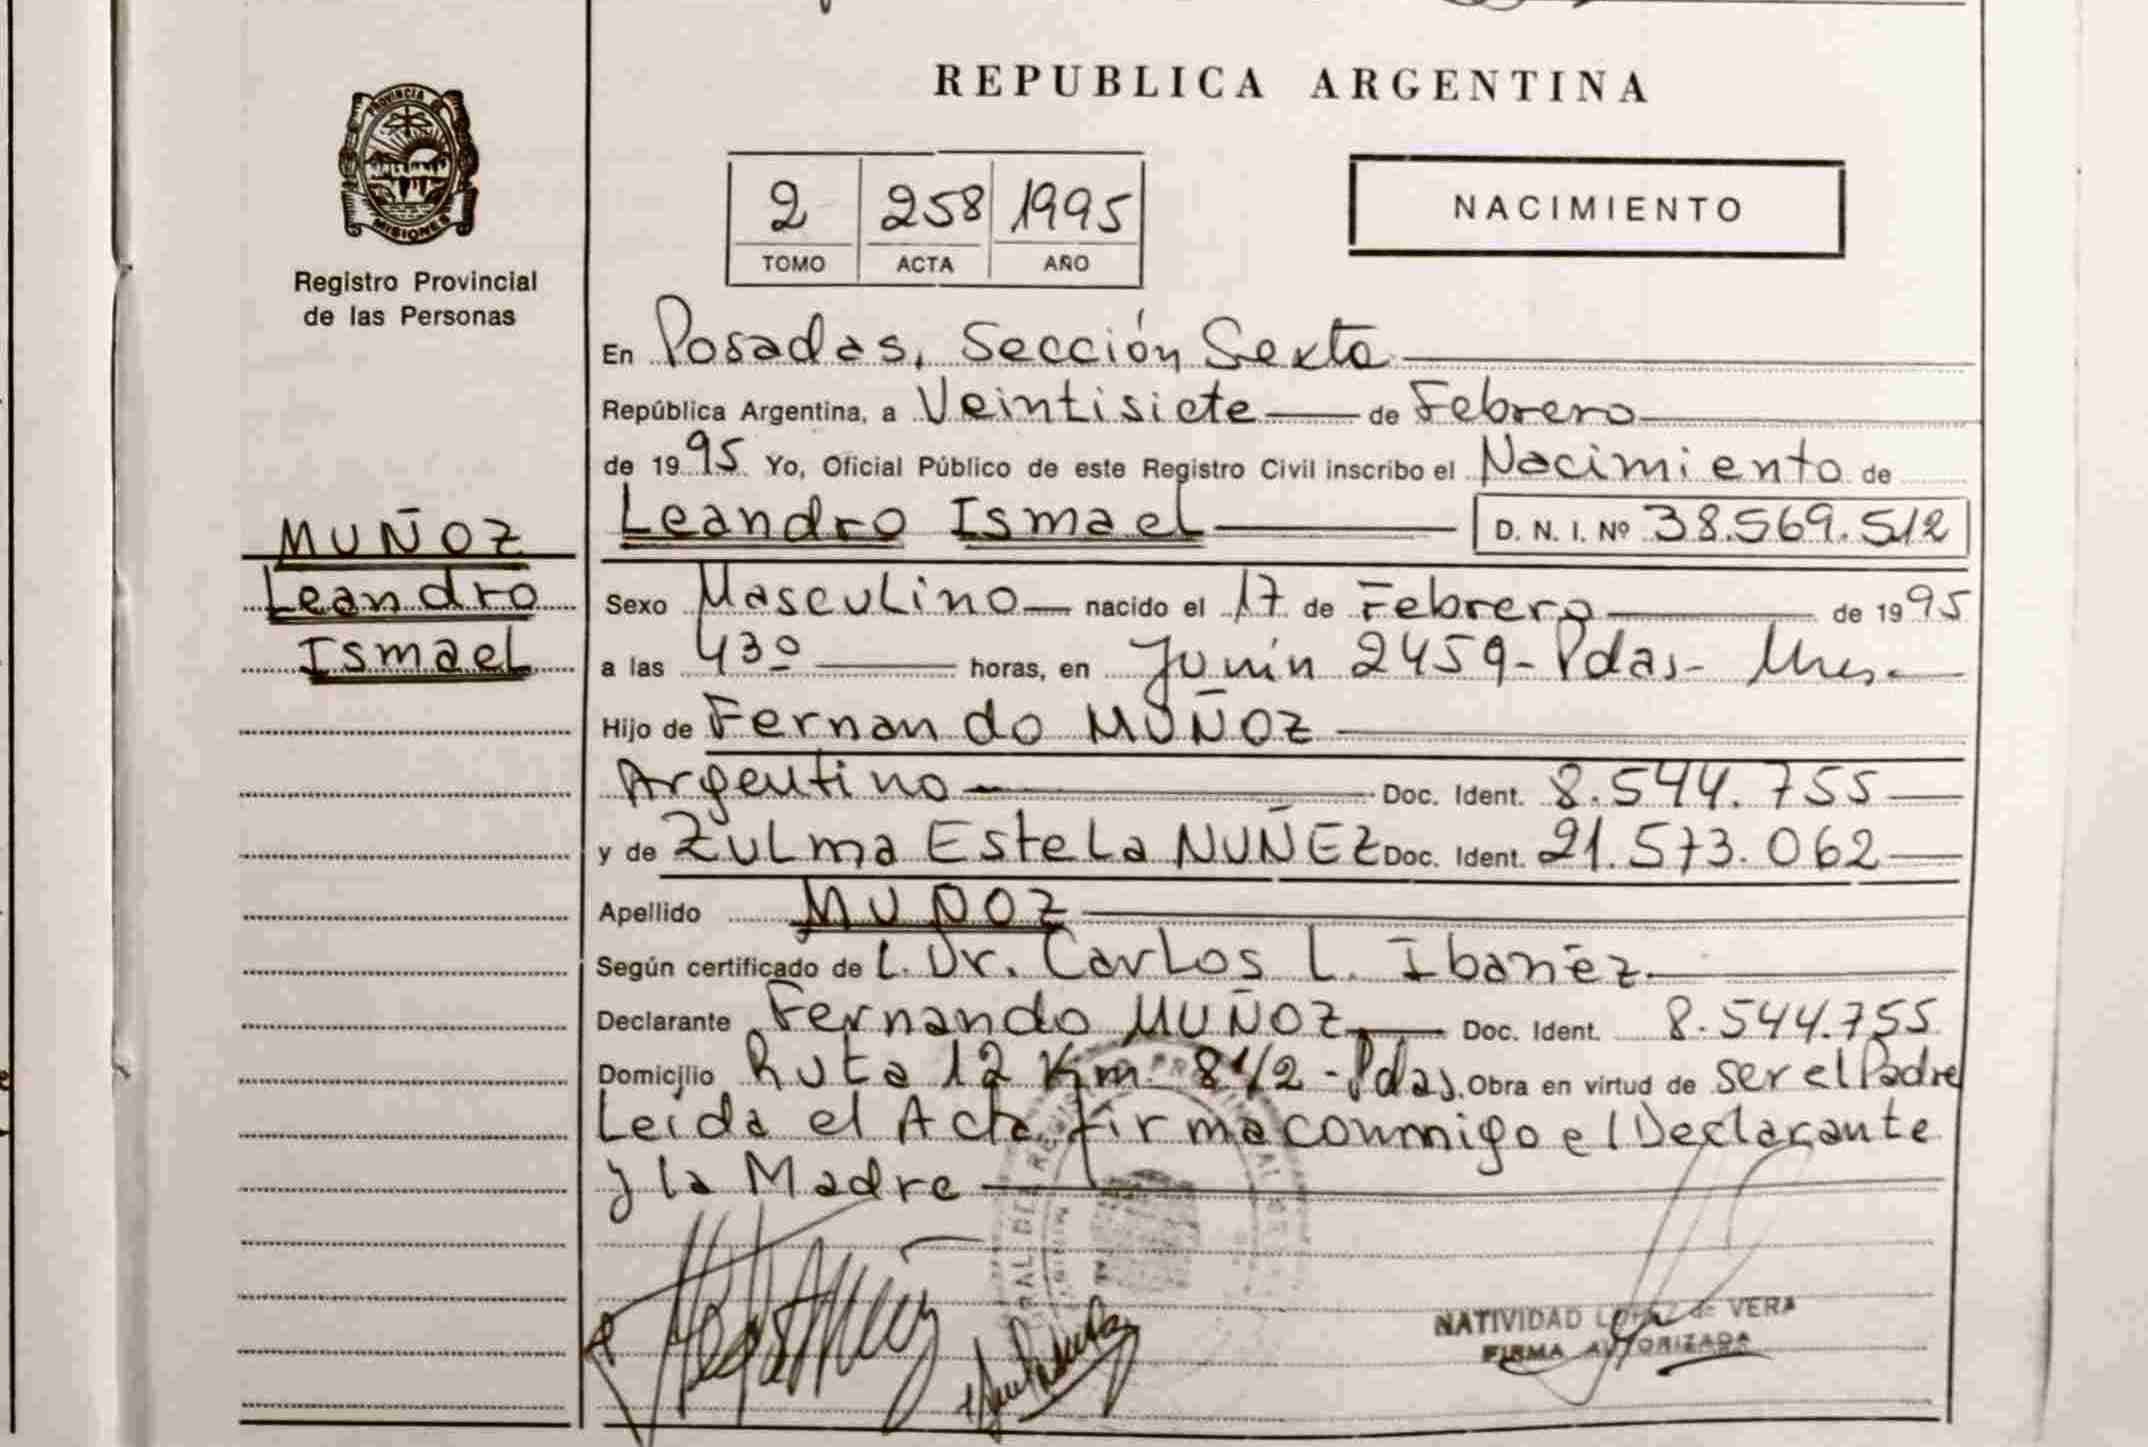 REPUBLICA ARGENTINA
PROVINCIA DE MISIONES
Registro Provincial
de las Personas
2 258 1995
TOMO ACTA AÑO
NACIMIENTO
MUÑOZ
Leandro
Ismael
En Posadas, Sección Sexta
República Argentina, a Veintisiete de Febrero
de 1995 Yo, Oficial Público de este Registro Civil inscribo el Nacimiento de
Leandro Ismael D. N. I. Nº 38.569.512
Sexo Masculino nacido el 17 de Febrero de 1995
a las 4³⁰ horas, en Junín 2459 - Pdas - Mnes.
Hijo de Fernando MUÑOZ
Argentino Doc. Ident. 8.544.755
y de Zulma Estela NUÑEZ Doc. Ident. 21.573.062
Apellido MUÑOZ
Según certificado de L. Dr. Carlos L. Ibañez
Declarante Fernando MUÑOZ Doc. Ident. 8.544.755
Domicilio Ruta 12 Km 8 1/2 - Pdas. Obra en virtud de ser el Padre
Leida el Acta firma conmigo el Declarante
y la Madre
NATIVIDAD LOPEZ de VERA
FIRMA AUTORIZADA